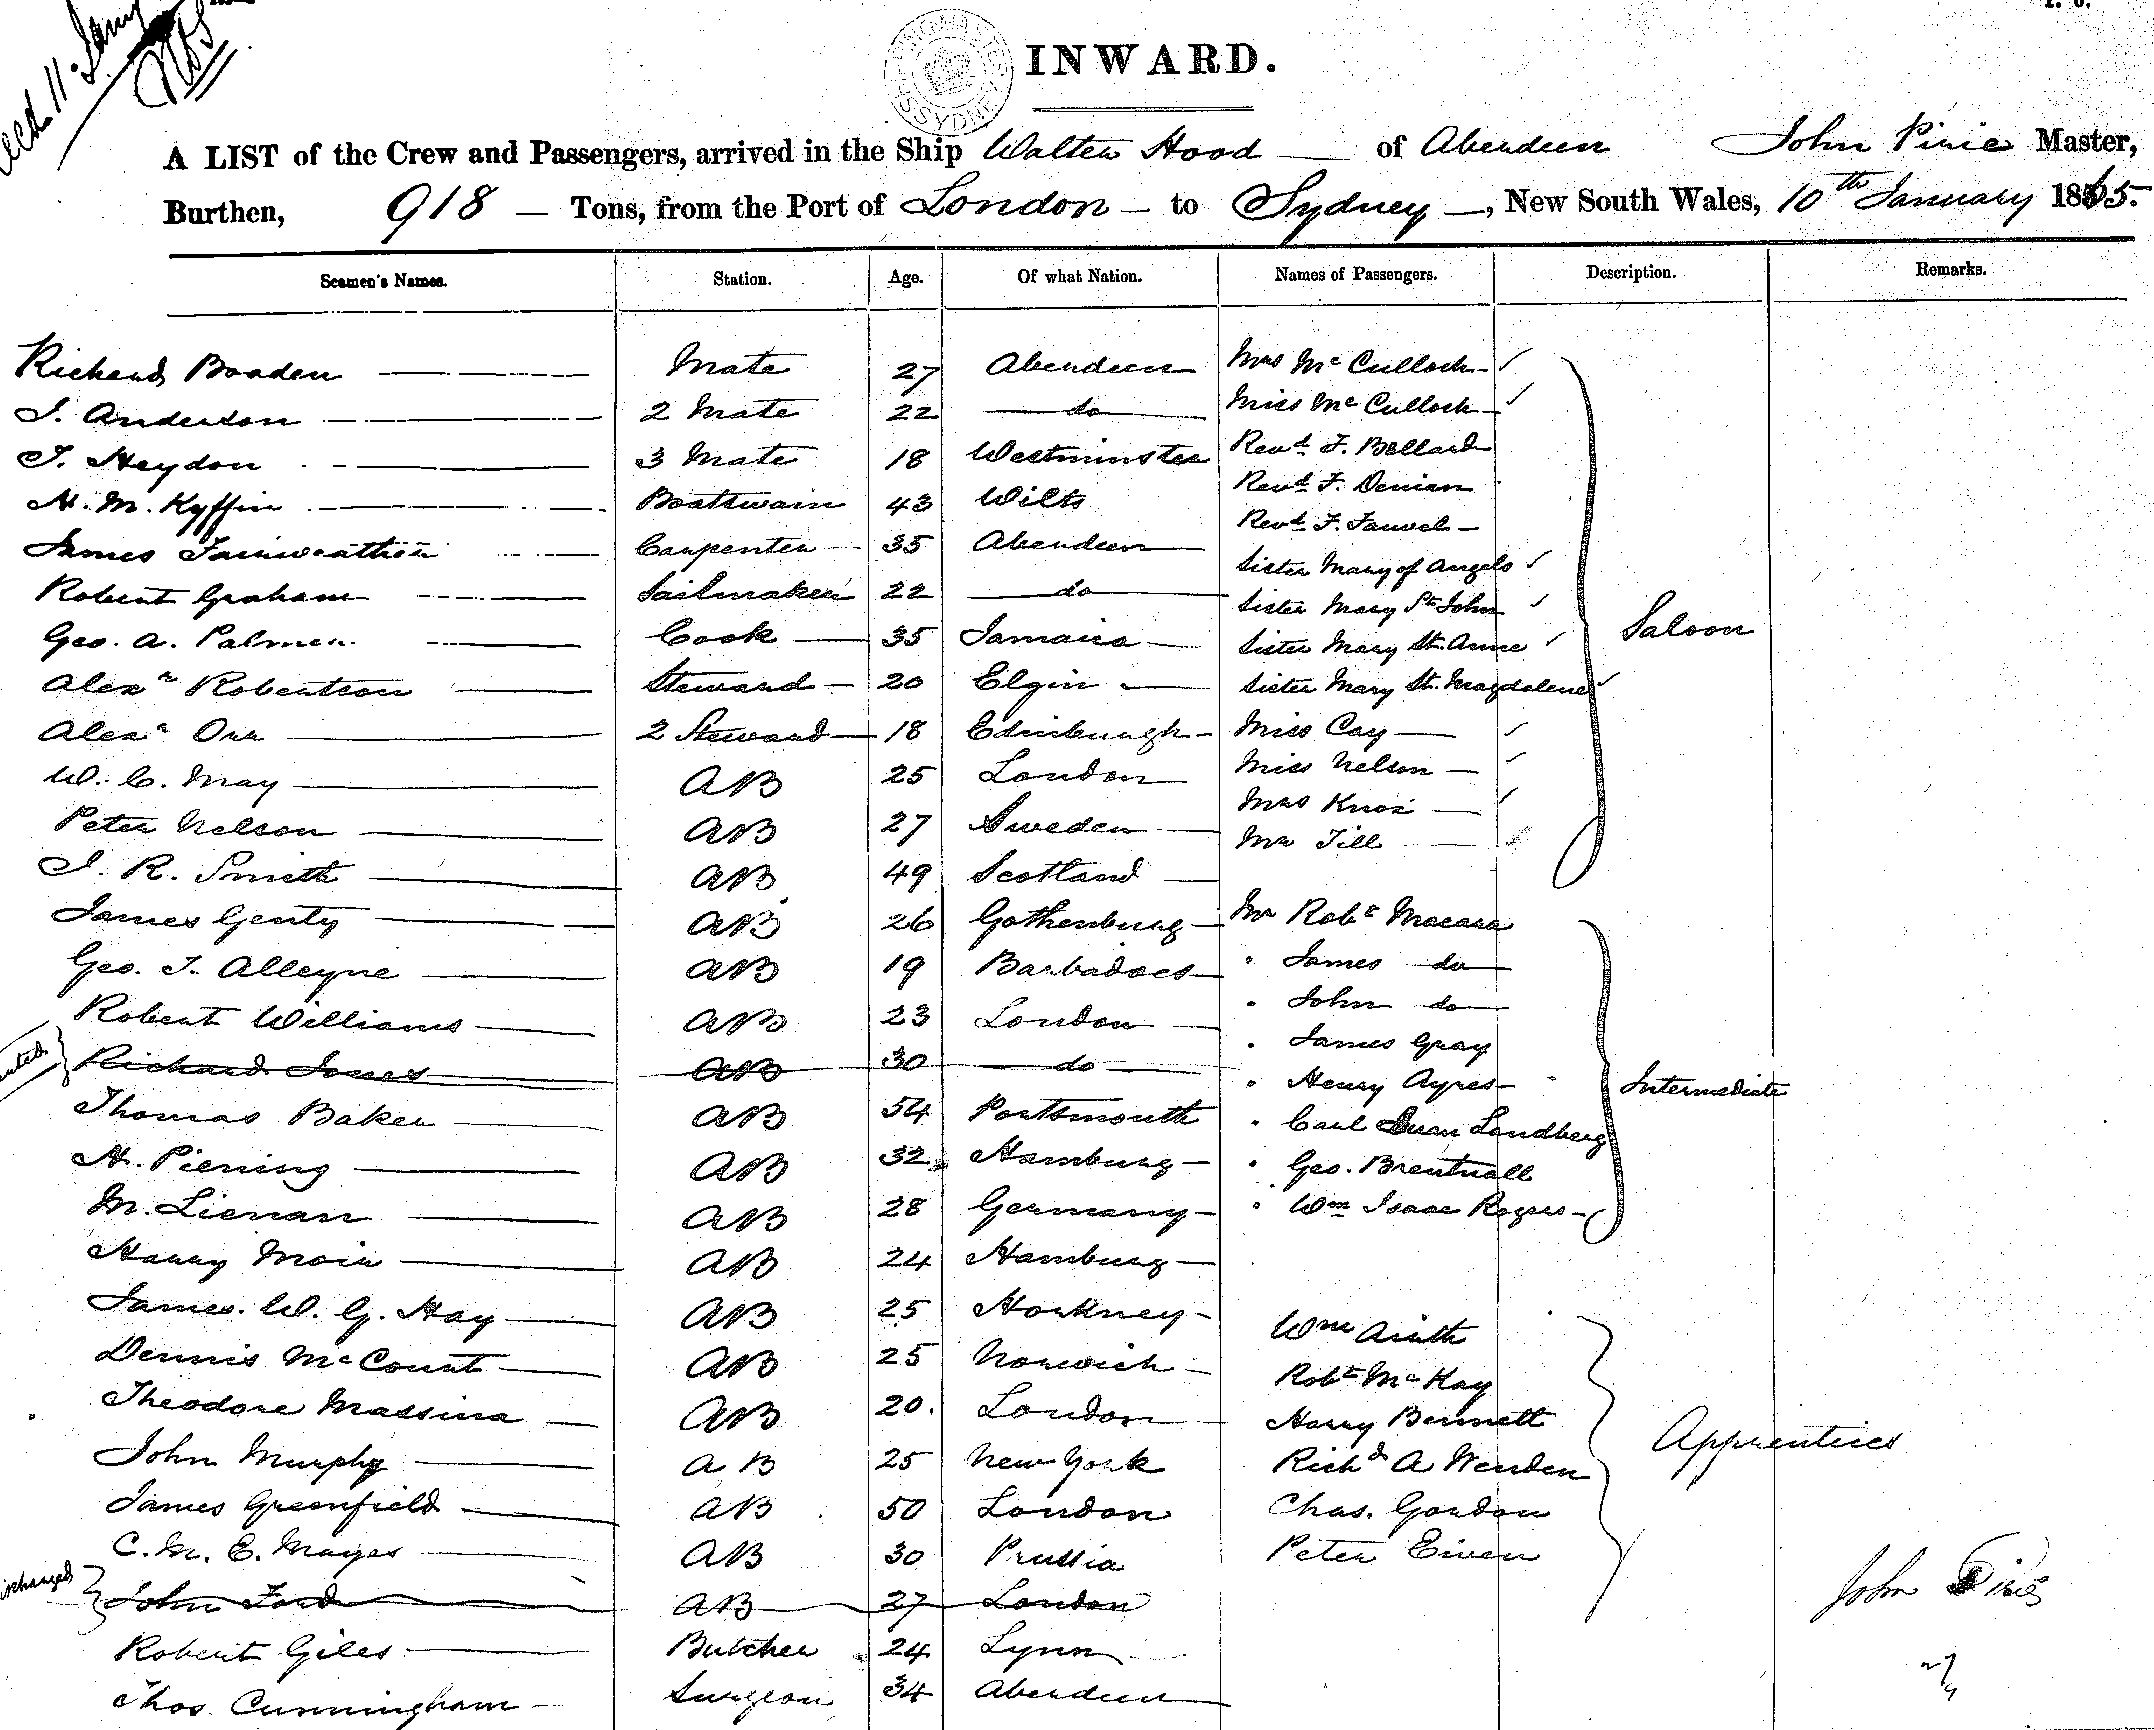 INWARD.
A LIST of the Crew and Passengers, arrived in the Ship Walter Hood of Aberdeen John Pirie Master,
Burthen, 918 — Tons, from the Port of London — to Sydney —, New South Wales, 10th January 1865.
Seamen's Names. Station. Age. Of what Nation. Names of Passengers. Description. Remarks.
Richard Boaden Mate 27 Aberdeen Mrs McCulloch
J. Anderson 2 Mate 22 do Miss McCulloch
J. Heydon 3 Mate 18 Westminster Revd. F. Bellard
Revd. F. Denian
H. M. Kyffin Boatswain 43 Wilts
Revd. F. Fauvel
James Fairweather Carpenter 35 Aberdeen
Sister Mary of Angels
Robert Graham Sailmaker 22 do Sister Mary St. John
Saloon
Geo. A. Palmer Cook 35 Jamaica Sister Mary St. Anne
Alexr Robertson Steward 20 Elgin Sister Mary St. Magdalene
Alexr Orr 2 Steward 18 Edinburgh Miss Cay
W. C. May AB 25 London Miss Nelson
Mrs Knox
Peter Nelson AB 27 Sweden Mr Till
J. R. Smith AB 49 Scotland
James Genty AB 26 Gothenburg Mr Robt Macara
Geo. T. Alleyne AB 19 Barbadoes " James do
Robert Williams AB 23 London " John do
" James Gray
Richard Jones AB 30 do
" Henry Ayres Intermediate
Thomas Baker AB 54 Portsmouth " Carl Landberg
H. Piening AB 32 Hamburg " Geo. Brentnall
M. Lienan AB 28 Germany " Wm Isaac Rogers
Harry Moir AB 24 Hamburg
James. W. G. Hay AB 25 Horkney
Wm
Dennis McCourt AB 25 Norwich
Robt McKay
Theodore Massina AB 20. London Harry Bennett
Apprentices
John Murphy AB 25 New York Richd A Wenden
James Greenfield AB 50 London Chas. Gordon
C. M. E. Mayes AB 30 Prussia Peter Eiven
John Ford AB 27 London
John Pirie
Robert Giles Butcher 24 Lynn
Thos Cunningham Surgeon 34 Aberdeen